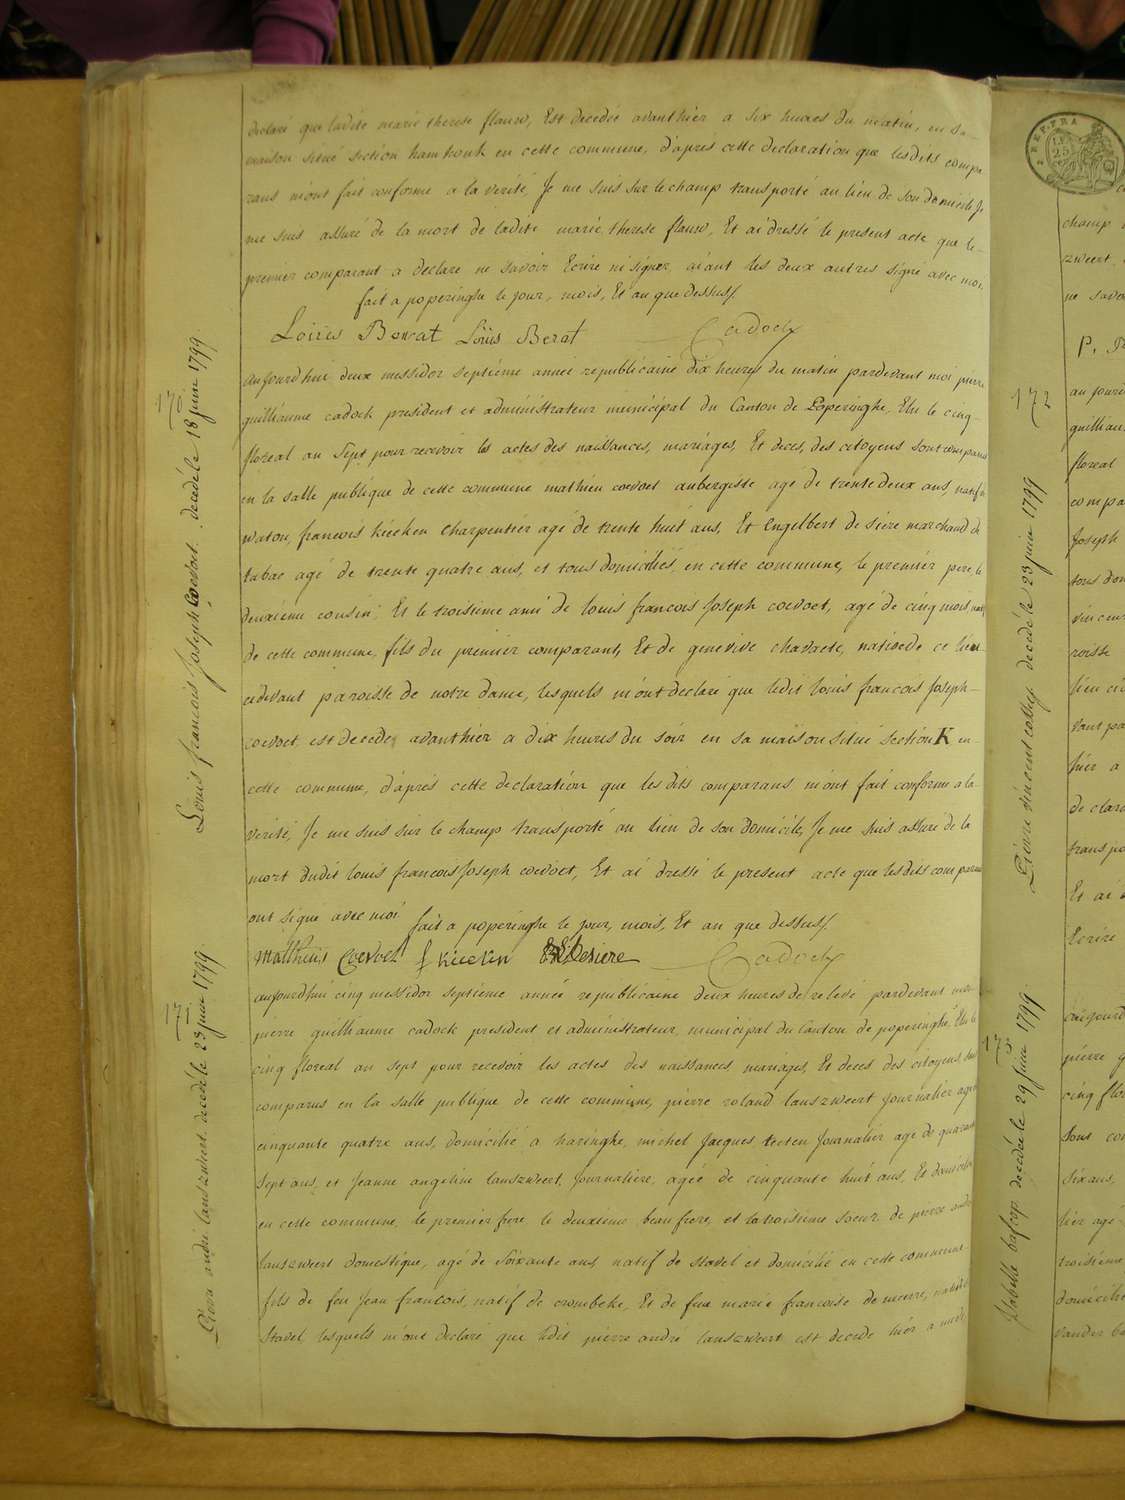 declaré que ladite marie therese flauw, Est decedée avanthier a six heures du matin, en sa
maison situe section hamhouk en cette commune, d'apres cette declaration que lesdits compa
rans m'ont fait conforme a la verité, Je me suis sur le champ transporté au lieu de son domicile Je
me suis assuré de la mort de ladite marie therese flauw, Et ai dressé le present acte que le
premier comparant a declare ne savoir Ecrire ni signer, aiant les deux autres signe avec moi.
fait a poperinghe le jour, mois, Et an que dessus/.
Loiiis Berrat Loüis Berat Cadock
170
Louis francois Joseph Coevoet. decedé le 18 juin 1799.
aujourdhui deux messidor septiéme année republicaine dix heures du matin pardevant moi pierre
guilliaume cadock president et administrateur municipal du Canton de Poperinghe, Elu le cinq
floreal an sept pour recevoir les actes des naissances, mariages, Et deces, des citoyens sont comparus
en la salle publique de cette commune mathieu coevoet aubergiste agé de trente deux ans, natif de
waton, francois kiecken charpentier agé de trente huit ans, Et Engelbert de siere marchand de
tabac agé de trente quatre ans, et tous domiciliés en cette commune, le premiér pere, le
deuxieme cousin, Et le troisiéme ami de louis francois Joseph coevoet, agé de cinq mois, natif
de cette commune, fils du premiér comparant, Et de genevive chavaete, nativede ce lieu
cidevant paroisse de notre dame, lesquels m'ont declaré que ledit louis francois Joseph
coevoet est decedé avanthier a dix heures du soir en sa maison situé section K en
cette commune, d'apres cette declaration que lesdits comparans m'ont fait conforme a la
verité, Je me suis sur le champ transporté au lieu de son domicile, Je me suis assuré de la
mort dudit louis francois Joseph coevoet, Et ai dressé le present acte que lesdits comparans
ont signe avec moi fait a poperinghe le jour, mois, Et an que dessus/.
Matthuis Coevoet f kieekin Desiere Cadock
171
Pierre andre lanszweert. decedé le 23 juin 1799.
aujourdhui cinq messidor septiéme année republicaine deux heures de relevé pardevant moi
pierre guilliaume cadock president et administrateur municipal du Canton de poperinghe, Elu le
cinq floreal an sept pour recevoir les actes des naissances mariages, Et deces des citoyens, sont
comparus en la salle publique de cette commune, pierre roland lanszweert Journalier agé de
cinquante quatre ans, domicilié a haringhe, michel Jacques tecteu Journalier agé de quarante
sept ans, et Jeanne angeline lanszweert, Journaliére, agée de cinquante huit ans, Et domiciliés
en cette commune, le premier frere, le deuxieme beau frere, et la troisiéme soeur de pierre andre
lanszweert domestique, agé de soixante ans, natif de stavel et domicilié en cette commune
fils de feu Jean francois, natif de crombeke, Et de feue marie francoise de neuvre, native de
stavel lesquels m'ont declaré que ledit pierre andré lanszweert est decede hiér a midi
172
Pierre vincent colley. decedé le 23 juin 1799
173
Isabelle bascop decedée le 29 juin 1799.
REP. FRA.
champ
zweert
P.
au jourd
guilliau
floreal
compa
Joseph
tous dom
vincen
roisse
lieu ci
vant pa
hier a
de clara
transpo
Et ai
Ecrire
aujourd
pierre g
cinq flor
sont co
six ans,
lier agé
troisiéme
domicilié
vander ba